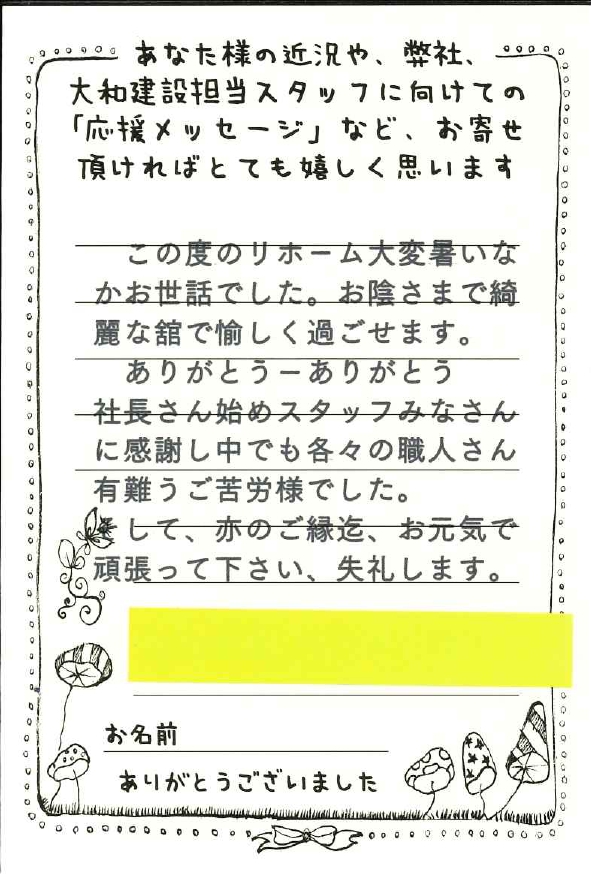 あなた様の近況や、弊社、
大和建設担当スタッフに向けての
「応援メッセージ」など、お寄せ
頂ければとても嬉しく思います
この度のリホーム大変暑いな
かお世話でした。お陰さまで綺
麗な舘で愉しく過ごせます。
ありがとうーありがとう
社長さん始めスタッフみなさん
に感謝し中でも各々の職人さん
有難うご苦労様でした。
して、亦のご縁迄、お元気で
頑張って下さい、失礼します。
お名前
ありがとうございました